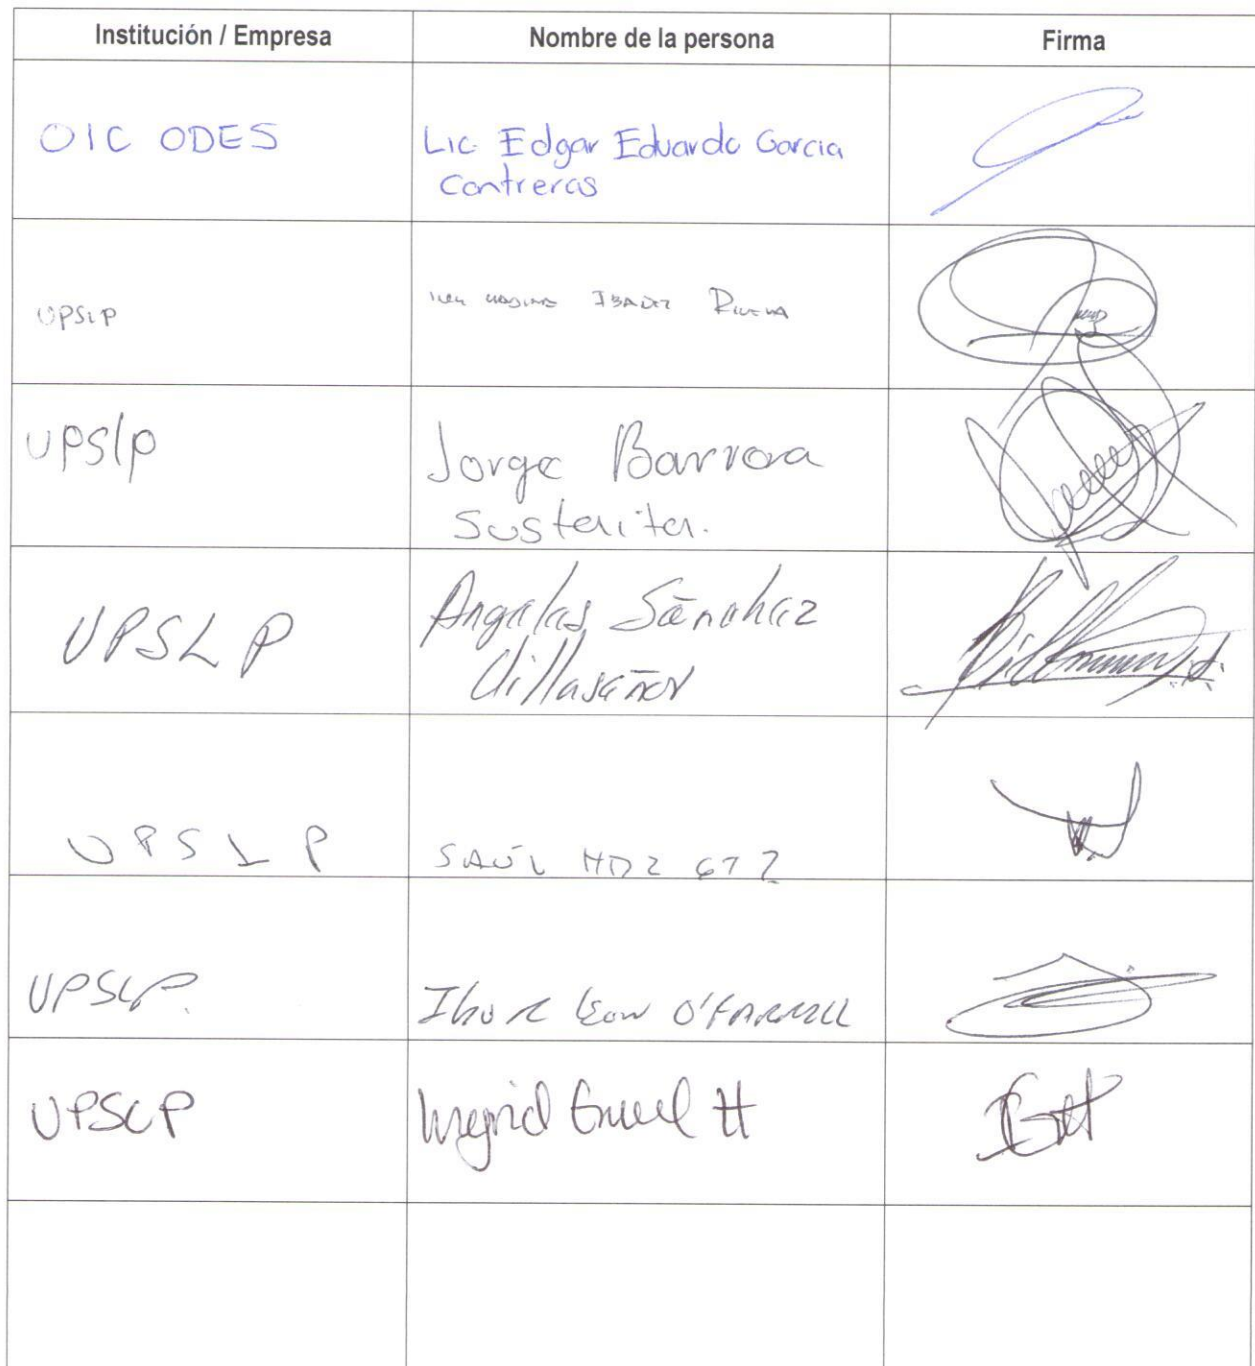 Institución / Empresa
Nombre de la persona
Firma
OIC ODES
Lic. Edgar Eduardo Garcia
Contreras
UPSLP
IBAÑEZ RIVERA
UPSlP
Jorge Barrera
UPSLP
Angeles Sánchez
Villaseñor
UPSLP
SAÚL HDZ GTZ
UPSLP.
LEON O'FARRILL
UPSLP
Ingrid H